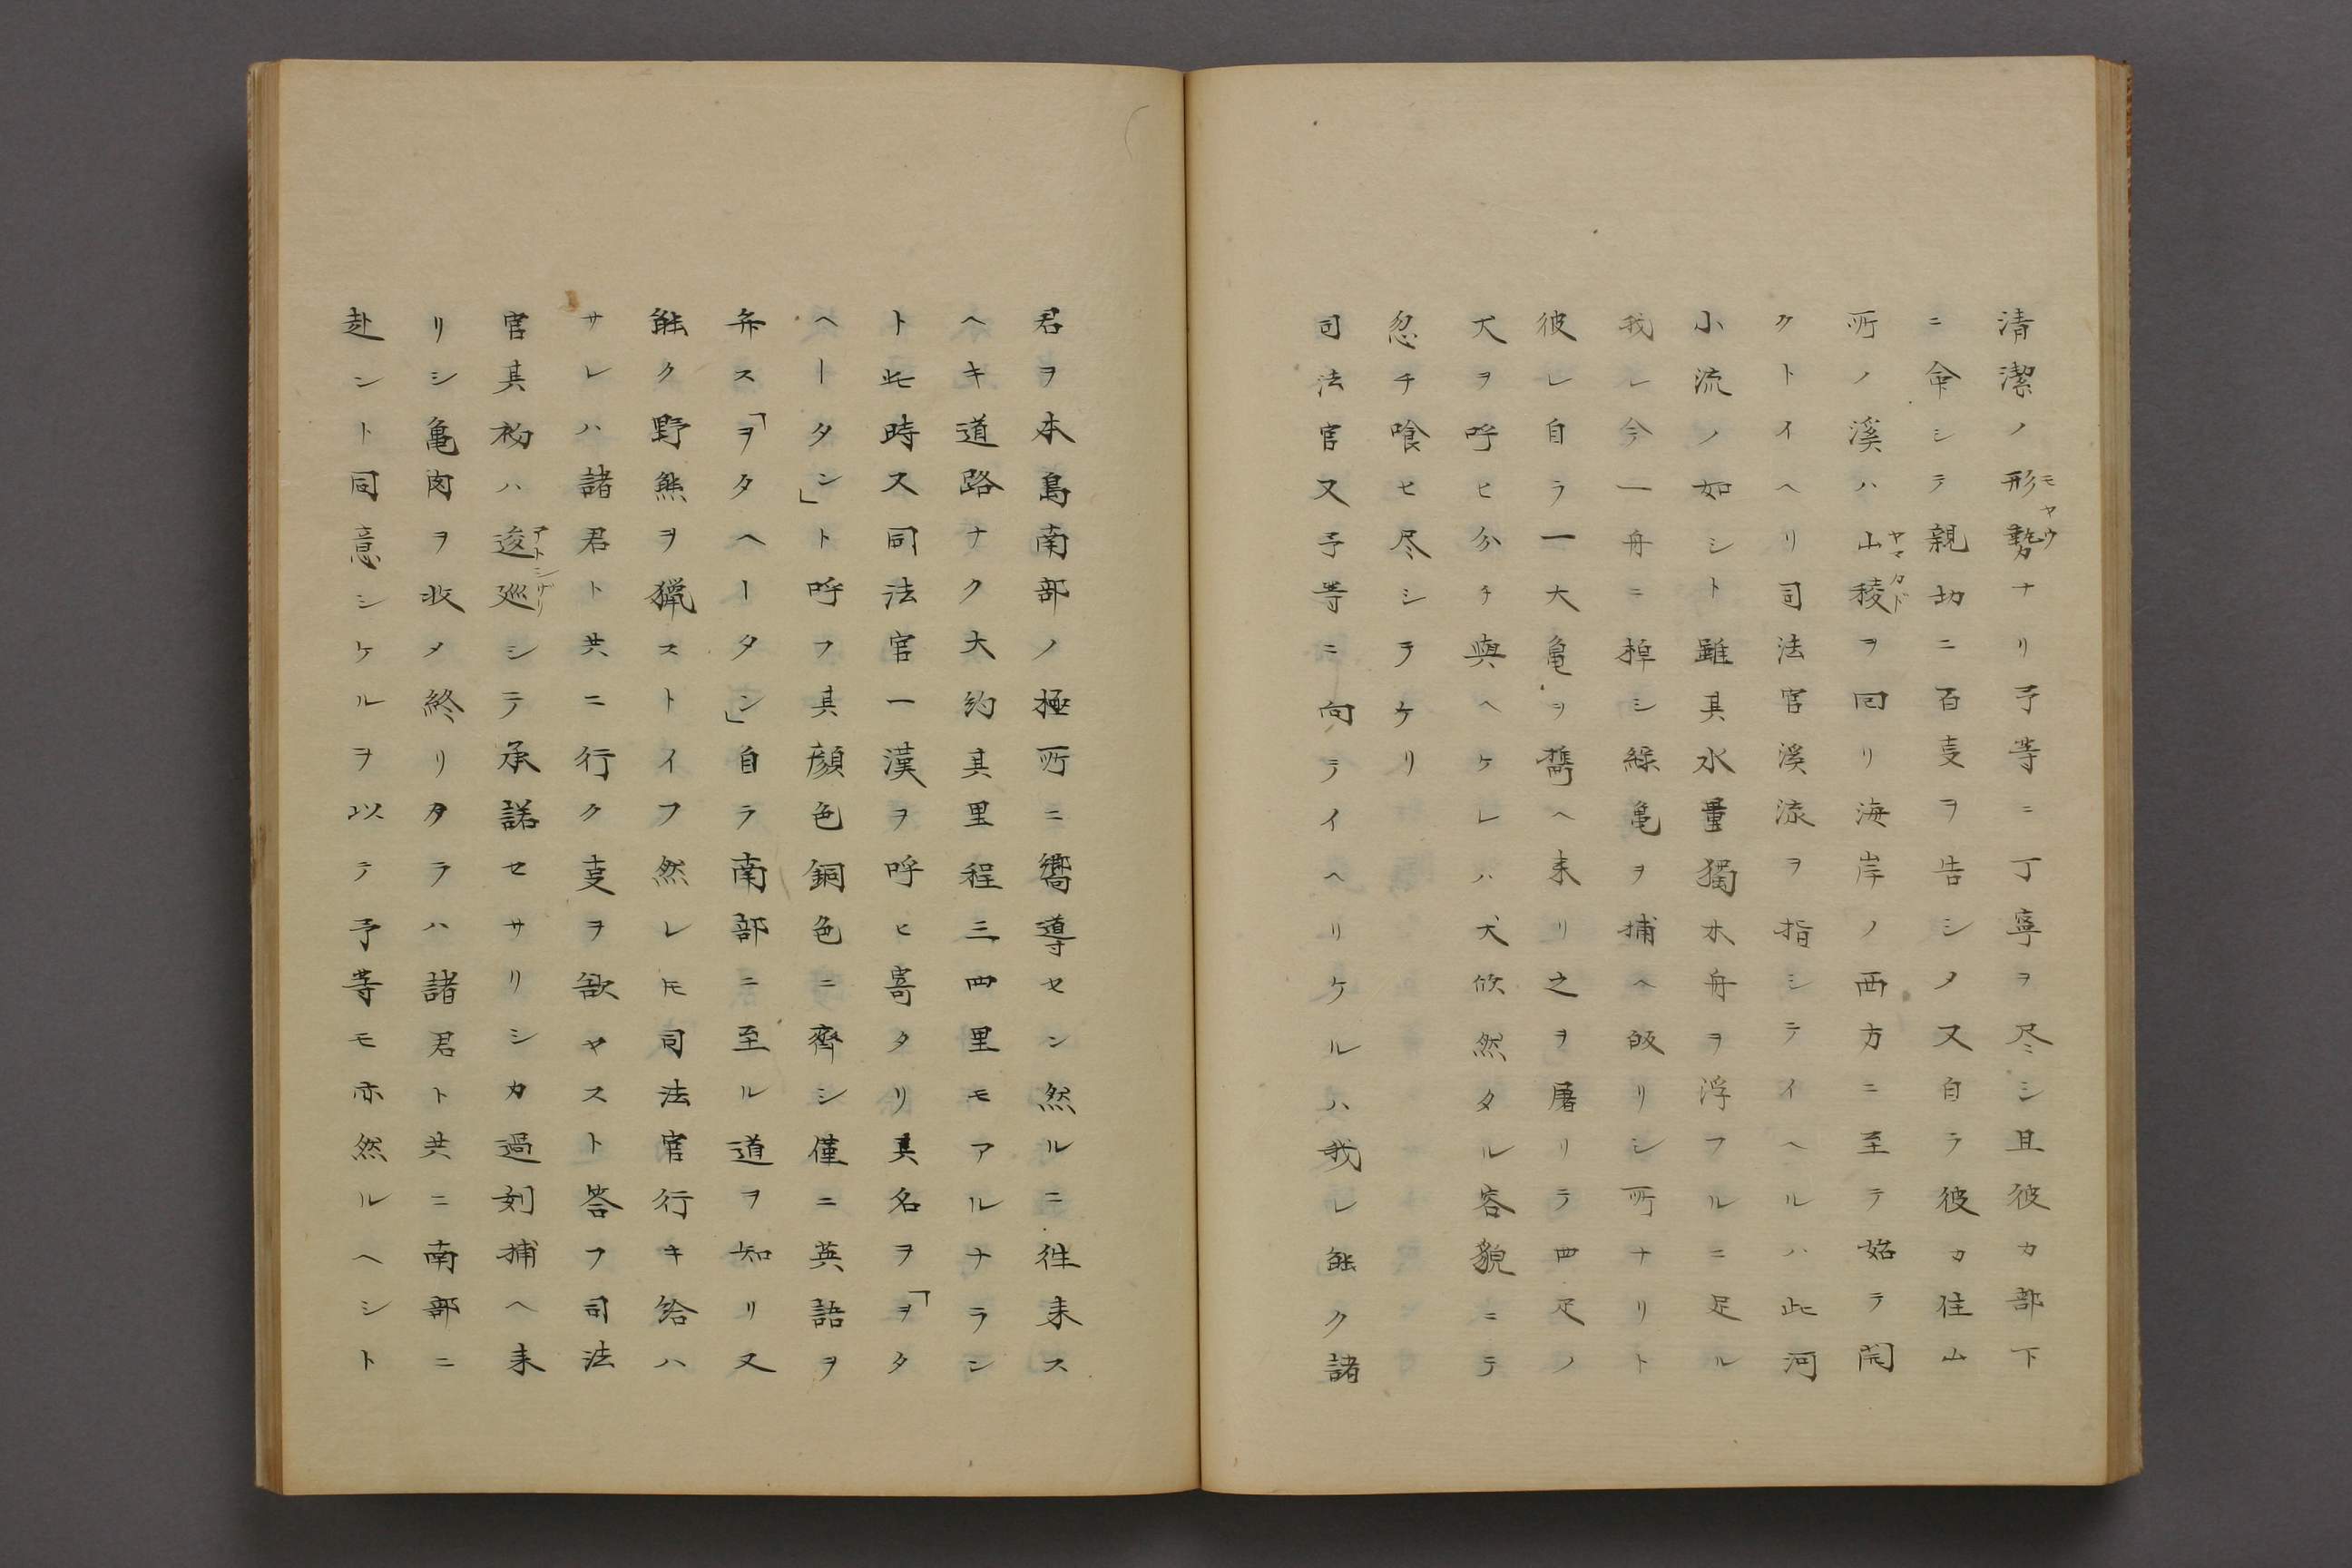 清潔ノ形勢モヤウナリ予等ニ丁寧ヲ尽シ且彼カ部下
ニ命シテ親切ニ百叓ヲ告シメ又自ラ彼カ住
所ノ溪ハ山稜ヤマカドヲ回リ海岸ノ西方ニ至テ始テ開
クトイヘリ司法官溪流ヲ指シテイヘルハ此河
小流ノ如シト雖其水量獨木舟ヲ浮フルニ足ル
我レ今一舟ニ棹シ緑亀ヲ捕ヘ皈リシ所ナリト
彼レ自ラ一大亀ヲ携ヘ来リ之ヲ屠リテ四足ノ
犬ヲ呼ヒ分チ與ヘケレハ犬倐然タル容貌ニテ
忽チ喰ヒ尽シテケリ
司法官又予等ニ向テイヘリケルハ我レ能ク諸
君ヲ本島南部ノ極所ニ嚮導セン然ルニ徃来ス
ヘキ道路ナク大約其里程三四里モアルナラン
ト此時又司法官一漢ヲ呼ヒ寄タリ其名ヲ「ヲタ
ヘータン」ト呼フ其顔色銅色ニ齊シ僅ニ英語ヲ
弁ス「ヲタヘータン」自ラ南部ニ至ル道ヲ知リ又
能ク野熊ヲ獵ストイフ然レ𪜈司法官行キ給ハ
サレハ諸君ト共ニ行ク叓ヲ欲セスト答フ司法
官其初ハ逡巡アトシザリシテ承諾セサリシカ過刻捕ヘ来
リシ亀肉ヲ収メ終リタラハ諸君ト共ニ南部ニ
赴ント同意シケルヲ以テ予等モ亦然ルヘシト